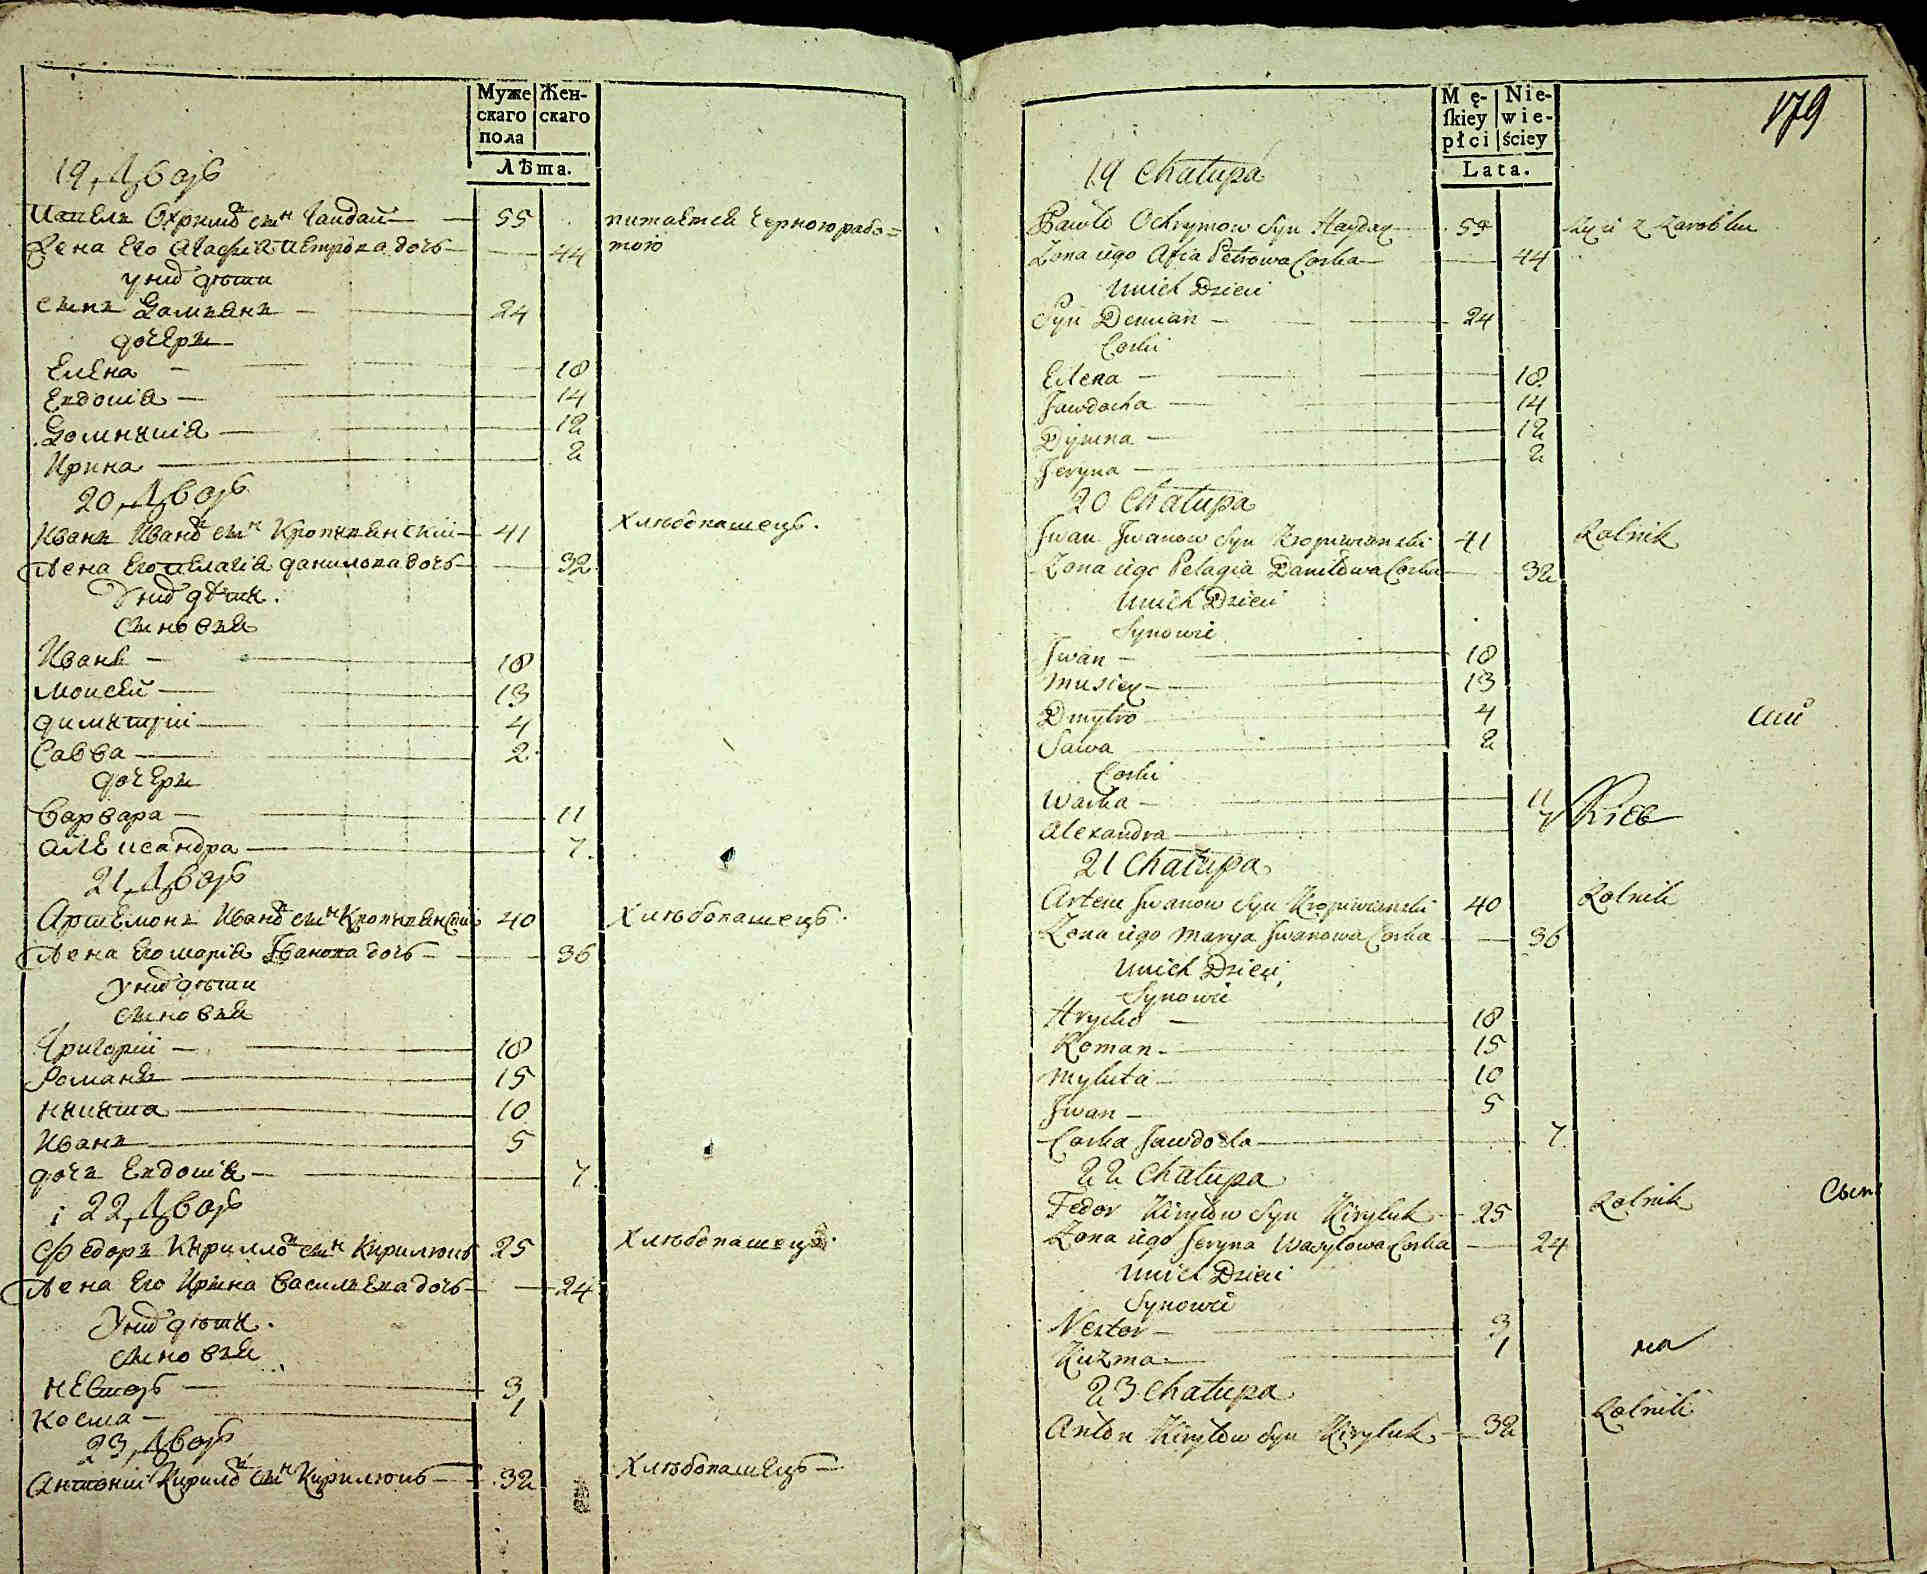 Муже Жен-
скаго скаго
пола
Лѣта.
19 Дворъ
Павелъ Охримов сын Гайдай 55 питается черною рабо=
Жена Его Агафиѧ Петрова дочь 44 тою
у них дети
Сынъ Дамьянъ 24
дочери
Елена 18
Евдокиѧ 14
Домникиѧ 12
Ирина 2
20 Дворъ
Иванъ Иванов сын Кропивянский 41 хлебопашецъ.
Жена Его Пелагиѧ Данилова дочь 32
У них дети.
сыновья
Иванъ 18
Моисей 13
Димитрий 4
Савва 2
дочери
Варвара 11
Александра 7
21 Дворъ
Артемонъ Иванов сын Кропивянский 40 Хлебопашецъ.
Жена Его Мария Иванова дочь 36
У них дети
сыновья
Григорий 18
Романъ 15
Никита 10
Иванъ 5
дочь Евдокия 7
22 Дворъ
Федоръ Кирилов сын Кирилюкъ 25 Хлебопашецъ.
Жена Его Ирина Васильева дочь 24
У них дети.
сыновья
Несторъ 3
Косма 1
23 Дворъ
Антоний Кирилов сын Кирилюкъ 32 Хлебопашецъ
Mę- Nie-
ſkiey wie-
płci ściey
Lata.
179
19 Chałupa
Pawło Ochrymow Syn Hayday 55 żyie z zarobku
Żona iego Afia Petrowa Corka 44
U nich Dzieci
Syn Demian 24
Corki
Elena 18
Jawdocha 14
Dymna 12
Jeryna 2
20 Chałupa
Jwan Jwanow Syn Kropiwianski 41 Rolnik
Żona iego Pelagia Daniłowa Corka 32
U nich Dzieci
Synowie
Jwan 18
Musiey 13
Dmytro 4
Sawa 2
Corki
Warka 11
Alexandra 7
21 Chałupa
Artem Jwanow Syn Kropiwianski 40 Rolnik
Żona iego Marya Jwanowa Corka 36
U nich Dzieci
Synowie
Hryćko 18
Roman 15
Mykita 10
Jwan 5
Corka Jawdocha 7
22 Chałupa
Fedor Kiryłow Syn Kiryluk 25 Rolnik
Żona iego Jeryna Wasylowa Corka 24
U nich Dzieci
Synowie
Nestor 3
Kuzma 1
на
23 Chałupa
Anton Kiryłow Syn Kiryluk 32 Rolnik